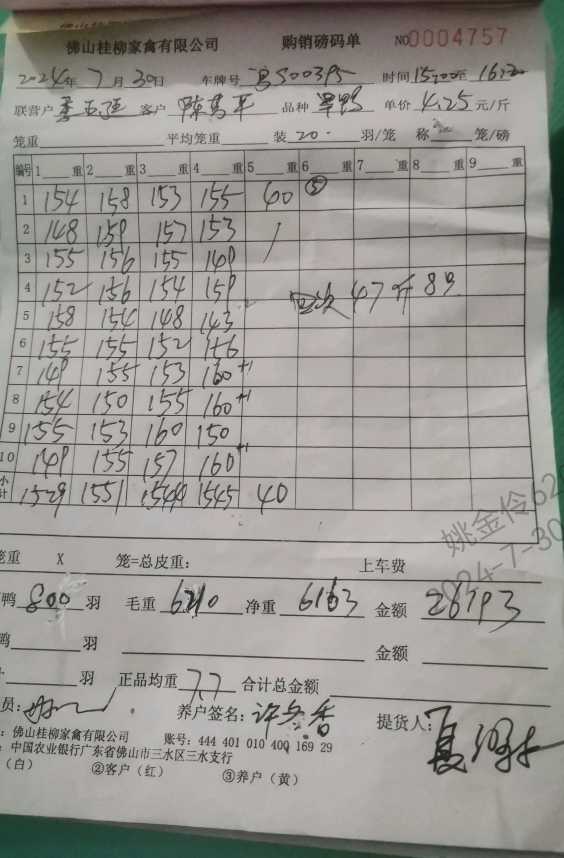 佛山桂柳家禽有限公司 购销磅码单 NO0004757
2024年7月30日 车牌号 S00395 时间15:00至16:20
联营户 客户 陈 平 品种 鸭 单价 4.25 元/斤
笼重 平均笼重 装 20 羽/笼 称 笼/磅
编号 1 重 2 重 3 重 4 重 5 重 6 重 7 重 8 重 9 重
1 154 158 153 155 40 ⑤
2 148 159 157 153
3 155 156 155 149
4 152 156 154 159 47 89
5 158 154 148 143
6 155 155 152 156
7 149 155 153 160+1
8 154 150 155 160+1
9 155 153 160 150
10 149 155 157 160+1
小计 1529 1551 1544 1545 40
笼重 X 笼=总皮重: 上车费
鸭 800 羽 毛重 6210 净重 6163 金额 26193
鸭 羽 金额
羽 正品均重 7.7 合计总金额
员: 养户签名: 许 香 提货人:
: 佛山桂柳家禽有限公司 账号: 444 401 010 400 169 29
: 中国农业银行广东省佛山市三水区三水支行
(白) ②客户(红) ③养户(黄)
姚金伶
2024-7-30